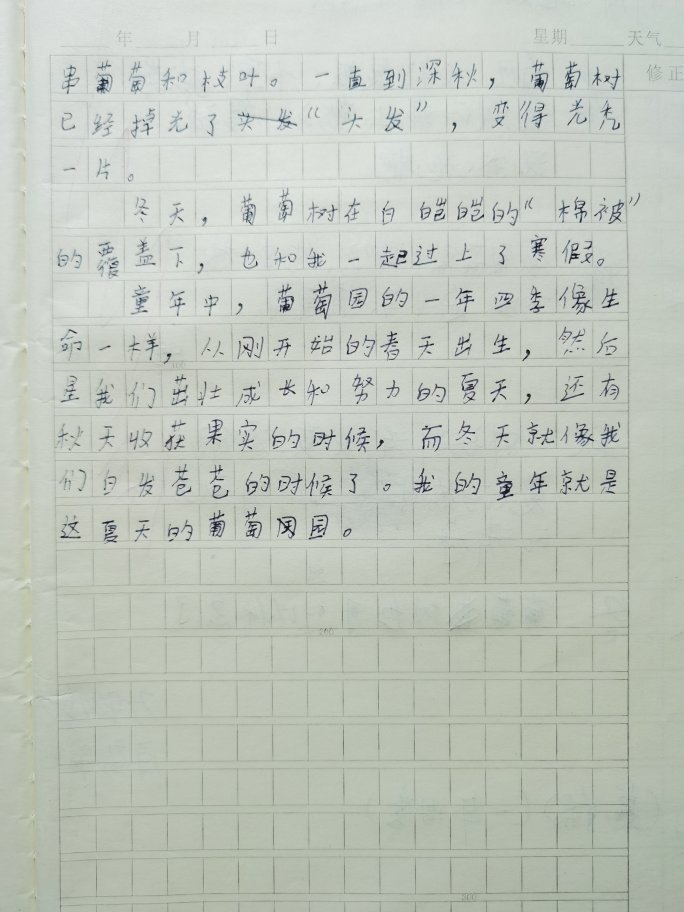 年 月 日 星期 天气
修正
串葡萄和枝叶。一直到深秋，葡萄树
已经掉光了“头发”，变得光秃
一片。
冬天，葡萄树在白皑皑的“棉被”
的覆盖下，也和我一起过上了寒假。
童年中，葡萄园的一年四季像生
命一样，从刚开始的春天出生，然后
是我们茁壮成长和努力的夏天，还有
秋天收获果实的时候，而冬天就像我
们白发苍苍的时候了。我的童年就是
这夏天的葡萄园。
200
300